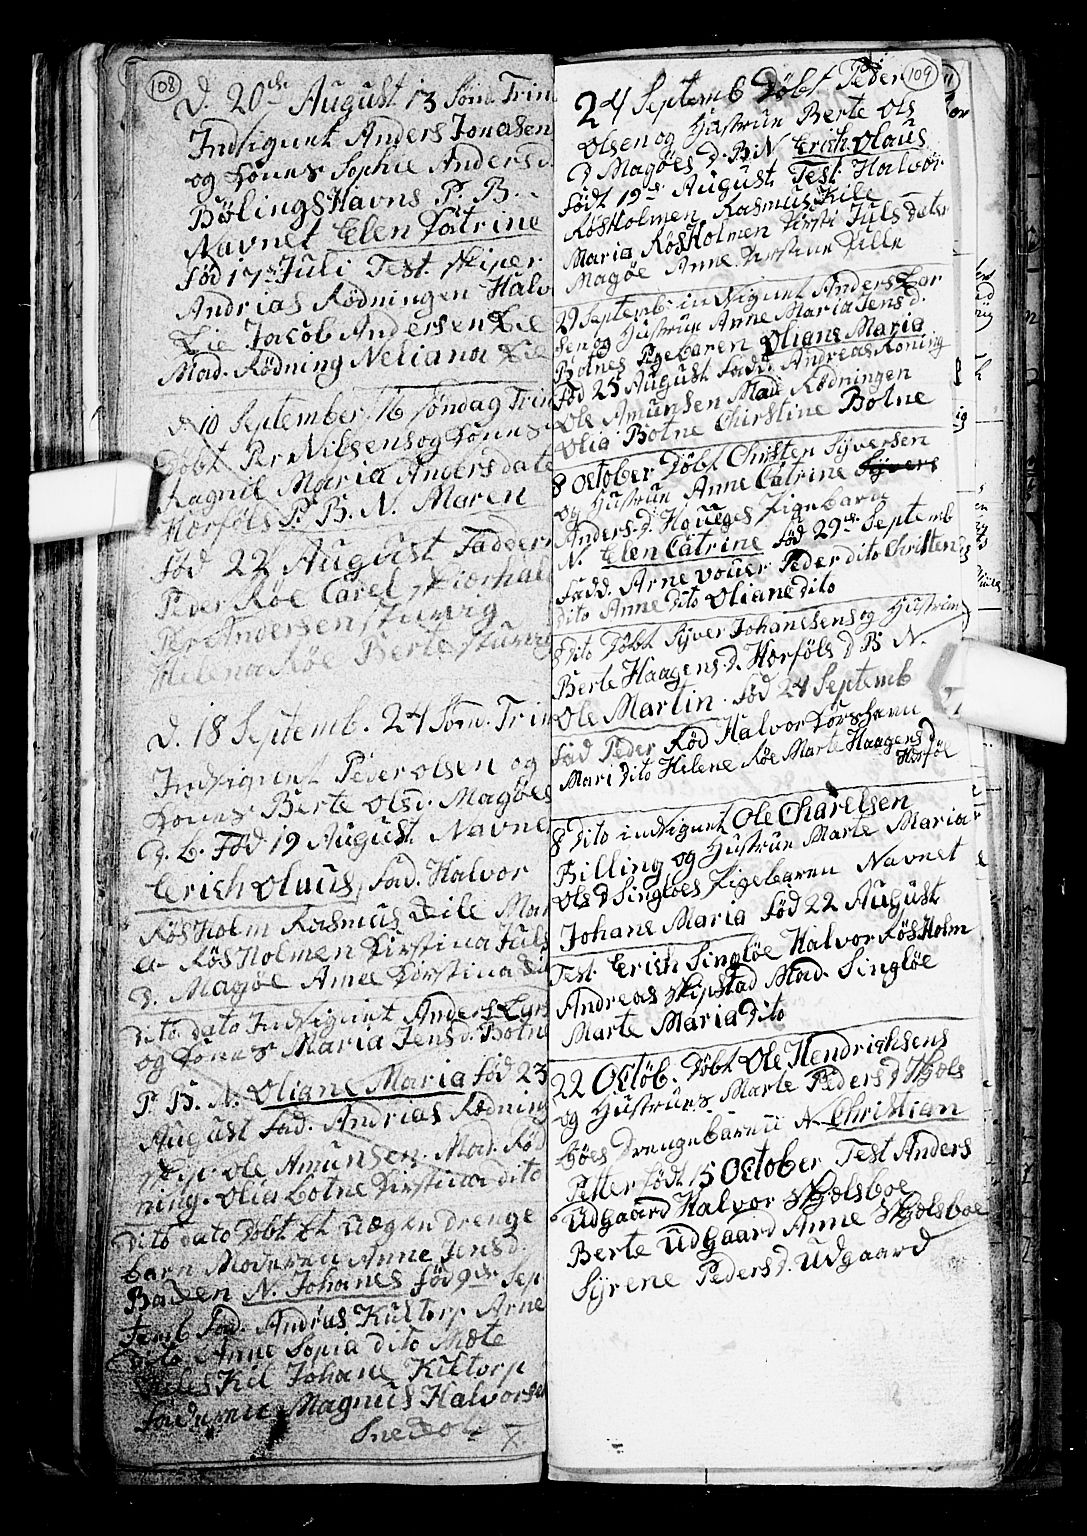 108
D. 20de August 13 Sönn. Trin
Indsigunt Anders Jonasen
og Konas Sophie Andersd.
Bölingshavns P. B.
Navnet Elen Catrine
Föd 17de Juli Test. Skiper
Andrias Rödningen Halv
Lie Jacob Andersen Lie
Mad. Rödning Neliana Lie
D. 10 September 16 Söndag Trin
Döbt Per Nilsens og Konas
Ragnil Maria Andersdate
Horföls P. B. N. Maren
föd 22 August Faddern
Peder Röe Carel
Per Andersen Stuevig
Helena Röe Berte Stuevig
D. 18 Septemb. 24 Sönn. Trin
Indsigunt Peder Olsen og
Konas Berte Olsd. Magöes
D. b. Föd 19 August Navne
Erich Olaus, fad. Halvor
Rösholm Rasmus Kile Mari
a Rös Holmen Kirstina Juls
D. Magöe Anne Kirstina
Dito dato Indsigunt Anders Lars
og Konas Maria Jensd. Botne
P. B. N. Oliane Maria föd 23
August fad. Andrias Rödning
Skip. Ole Amunsen. Mad. Röd
ning. Olia Botne Kirstina dito
Dito dato Döbt Et Uægen drenge
barn Moderen Anne Jensd.
Baden N. Johanes föd 9de Sep
temb fad. Andrias Kiltorp Arne
Dito Anne Sopia dito Mete
Kil Johane Kiltorp
Magnus Halvorsen
109
24 Septemb Döbt Peder
Olsen og Hustrun Berte Ols
D Magöes D. B. N Erich Olaus
födt 19de August Test Halvor
Rösholmen Rasmus Kile
Maria Rösholmen Kirsti Julsdater
Magöe Anne Kirstine Kille
29 Septemb: indsigunt Anders Lar
sen og Hustrun Anne Maria Jensd.
Botnes Pigebaren Oliane Maria
föd 23 August fadd. Andreas Röning
Ole Amunsen Mad Rödningen
Olia Botne Chirstine Botne
8 October Döbt Christen Syversen
og Hustrun Anne Catrine
Anders.D. Houeges Pigebarn
N. Elen Catrine föd 29de Septemb
Fadd. Arne vouer Peder dito Christen
dito Anne dito Oliane dito
8 Dito Döbt Syver Johanesens og Hustrun
Berte Haagens.D. Horföls D B N.
Ole Martin. föd 24 Septemb
fad Peder Röd Halvor Korshavn
Mari dito Helene Röe Marte Haagensd
Horföl
8 Dito indsigunt Ole Charelsen
Billing og Hustrun Marte Maria
Ols D Singlöes Pigebaren Navnet
Johane Maria föd 22 August
Test. Erich Singlöe Halvor Rösholm
Andreas Skipstad Mad. Singlöe
Marte Maria Dito
22 Octöb. Döbt Ole Hendrichsens
og Hustrues Marte Peders D
böes Drengebaren N. Christian
Petter födt 15 October Test Anders
Udgaard Halvor Skjelsboe
Berte Udgaard Anne Skjelsboe
Syrene Pedersd. Udgaard